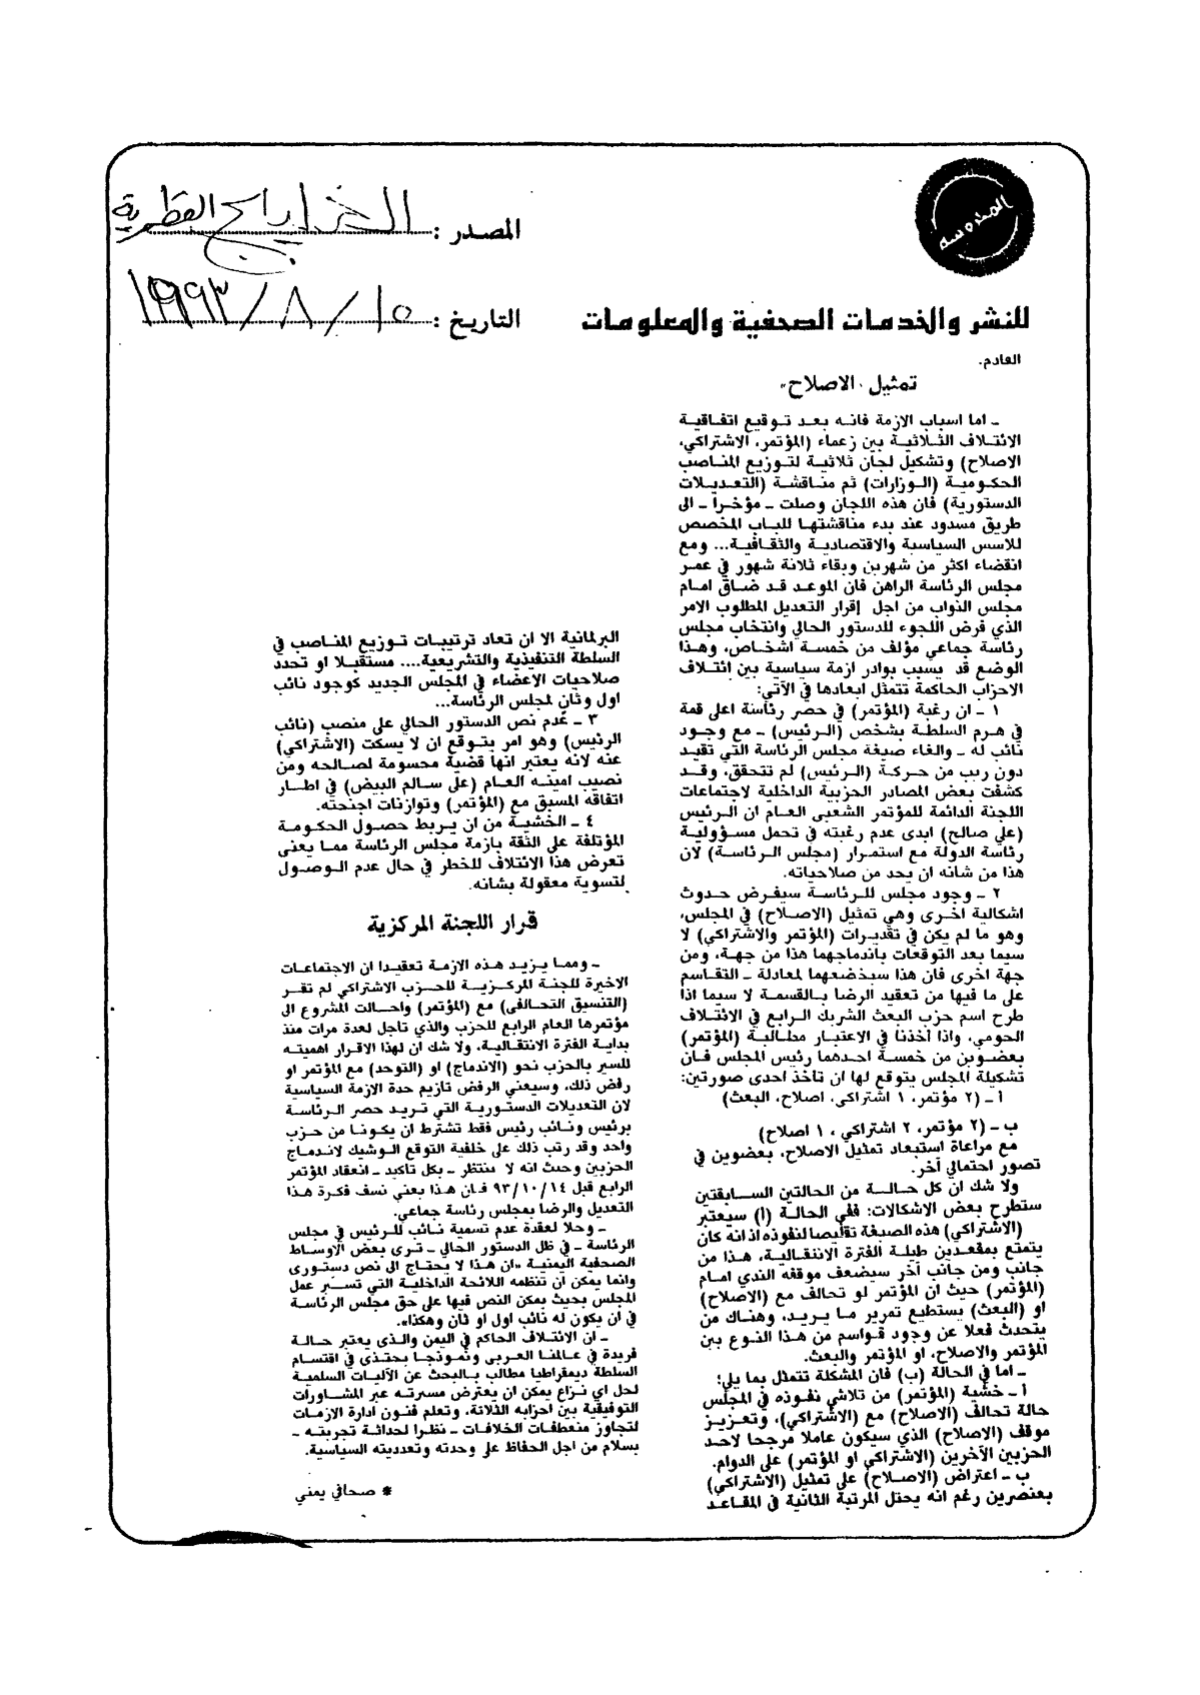 المصدر :
التاريخ : ١٥ / ٨ / ١٩٩٣
للنشر والخدمات الصحفية والمعلومات
القادم.
تمثيل «الاصلاح»
ـ اما اسباب الازمة فانه بعد توقيع اتفاقية
الائتلاف الثلاثية بين زعماء (المؤتمر، الاشتراكي،
الاصلاح) وتشكيل لجان ثلاثية لتوزيع المناصب
الحكومية (الوزارات) ثم مناقشة (التعديلات
الدستورية) فان هذه اللجان وصلت ـ مؤخرا ـ الى
طريق مسدود عند بدء مناقشتها للباب المخصص
للاسس السياسية والاقتصادية والثقافية... ومع
انقضاء اكثر من شهرين وبقاء ثلاثة شهور في عمر
مجلس الرئاسة الراهن فان الموعد قد ضاق امام
مجلس النواب من اجل إقرار التعديل المطلوب الامر
الذي فرض اللجوء للدستور الحالي وانتخاب مجلس
رئاسة جماعي مؤلف من خمسة اشخاص، وهذا
الوضع قد يسبب بوادر ازمة سياسية بين ائتلاف
الاحزاب الحاكمة تتمثل ابعادها في الآتي:
١ ـ ان رغبة (المؤتمر) في حصر رئاسة اعلى قمة
في هرم السلطة بشخص (الرئيس) ـ مع وجود
نائب له ـ والغاء صيغة مجلس الرئاسة التي تقيد
دون ريب من حركة (الرئيس) لم تتحقق، وقد
كشفت بعض المصادر الحزبية الداخلية لاجتماعات
اللجنة الدائمة للمؤتمر الشعبي العام ان الرئيس
(علي صالح) ابدى عدم رغبته في تحمل مسؤولية
رئاسة الدولة مع استمرار (مجلس الرئاسة) لان
هذا من شانه ان يحد من صلاحياته.
٢ ـ وجود مجلس للرئاسة سيفرض حدوث
اشكالية اخرى وهي تمثيل (الاصلاح) في المجلس،
وهو ما لم يكن في تقديرات (المؤتمر والاشتراكي) لا
سيما بعد التوقعات باندماجهما هذا من جهة، ومن
جهة اخرى فان هذا سيخضعهما لمعادلة ـ التقاسم
على ما فيها من تعقيد الرضا بالقسمة لا سيما اذا
طرح اسم حزب البعث الشريك الرابع في الائتلاف
الحومي، واذا أخذنا في الاعتبار مطالبة (المؤتمر)
بعضوين من خمسة احدهما رئيس المجلس فان
تشكيلة المجلس يتوقع لها ان تأخذ احدى صورتين:
أ ـ (٢ مؤتمر، ١ اشتراكي، اصلاح، البعث)
ب ـ (٢ مؤتمر، ٢ اشتراكي، ١ اصلاح)
مع مراعاة استبعاد تمثيل الاصلاح، بعضوين في
تصور احتمالي آخر.
ولا شك ان كل حالة من الحالتين السابقتين
ستطرح بعض الاشكالات: ففي الحالة (أ) سيعتبر
(الاشتراكي) هذه الصيغة تقليصا لنفوذه اذ انه كان
يتمتع بمقعدين طيلة الفترة الانتقالية، هذا من
جانب ومن جانب آخر سيضعف موقفه الندي امام
(المؤتمر) حيث ان المؤتمر لو تحالف مع (الاصلاح)
او (البعث) يستطيع تمرير ما يريد، وهناك من
يتحدث فعلا عن وجود قواسم من هذا النوع بين
المؤتمر والاصلاح، او المؤتمر والبعث.
ـ اما في الحالة (ب) فان المشكلة تتمثل بما يلي؛
أ ـ خشية (المؤتمر) من تلاشي نفوذه في المجلس
حالة تحالف (الاصلاح) مع (الاشتراكي)، وتعزيز
موقف (الاصلاح) الذي سيكون عاملا مرجحا لاحد
الحزبين الآخرين (الاشتراكي او المؤتمر) على الدوام.
ب ـ اعتراض (الاصلاح) على تمثيل (الاشتراكي)
بعنصرين رغم انه يحتل المرتبة الثانية في المقاعد
البرلمانية الا ان تعاد ترتيبات توزيع المناصب في
السلطة التنفيذية والتشريعية.... مستقبلا او تحدد
صلاحيات الاعضاء في المجلس الجديد كوجود نائب
اول وثان لمجلس الرئاسة...
٣ ـ عدم نص الدستور الحالي على منصب (نائب
الرئيس) وهو امر يتوقع ان لا يسكت (الاشتراكي)
عنه لانه يعتبر انها قضية محسومة لصالحه ومن
نصيب امينه العام (علي سالم البيض) في اطار
اتفاقه المسبق مع (المؤتمر) وتوازنات اجنحته.
٤ ـ الخشية من ان يربط حصول الحكومة
المؤتلفة على الثقة بازمة مجلس الرئاسة مما يعنى
تعرض هذا الائتلاف للخطر في حال عدم الوصول
لتسوية معقولة بشانه.
قرار اللجنة المركزية
ـ ومما يزيد هذه الازمة تعقيدا ان الاجتماعات
الاخيرة للجنة المركزية للحزب الاشتراكي لم تقر
(التنسيق التحالفى) مع (المؤتمر) واحالت المشروع الى
مؤتمرها العام الرابع للحزب والذي تاجل لعدة مرات منذ
بداية الفترة الانتقالية، ولا شك ان لهذا الاقرار اهميته
للسير بالحزب نحو (الاندماج) او (التوحد) مع المؤتمر او
رفض ذلك، وسيعني الرفض تازيم حدة الازمة السياسية
لان التعديلات الدستورية التي تريد حصر الرئاسة
برئيس ونائب رئيس فقط تشترط ان يكونا من حزب
واحد وقد رتب ذلك على خلفية التوقع الوشيك لاندماج
الحزبين وحيث انه لا ينتظر ـ بكل تاكيد ـ انعقاد المؤتمر
الرابع قبل ١٤ /١٠ /٩٣ فان هذا يعني نسف فكرة هذا
التعديل والرضا بمجلس رئاسة جماعي.
ـ وحلا لعقدة عدم تسمية نائب للرئيس في مجلس
الرئاسة ـ في ظل الدستور الحالي ـ ترى بعض الاوساط
الصحفية اليمنية «ان هذا لا يحتاج الى نص دستورى
وانما يمكن ان تنظمه اللائحة الداخلية التي تسير عمل
المجلس بحيث يمكن النص فيها على حق مجلس الرئاسة
في ان يكون له نائب اول او ثان وهكذا».
ـ ان الائتلاف الحاكم في اليمن والذى يعتبر حالة
فريدة في عالمنا العربى ونموذجا يحتذى في اقتسام
السلطة ديمقراطيا مطالب بالبحث عن الآليات السلمية
لحل اي نزاع يمكن ان يعترض مسيرته عبر المشاورات
التوفيقية بين احزابه الثلاثة، وتعلم فنون ادارة الازمات
لتجاوز منعطفات الخلافات ـ نظرا لحداثة تجربته ـ
بسلام من اجل الحفاظ على وحدته وتعدديته السياسية.
* صحافي يمني